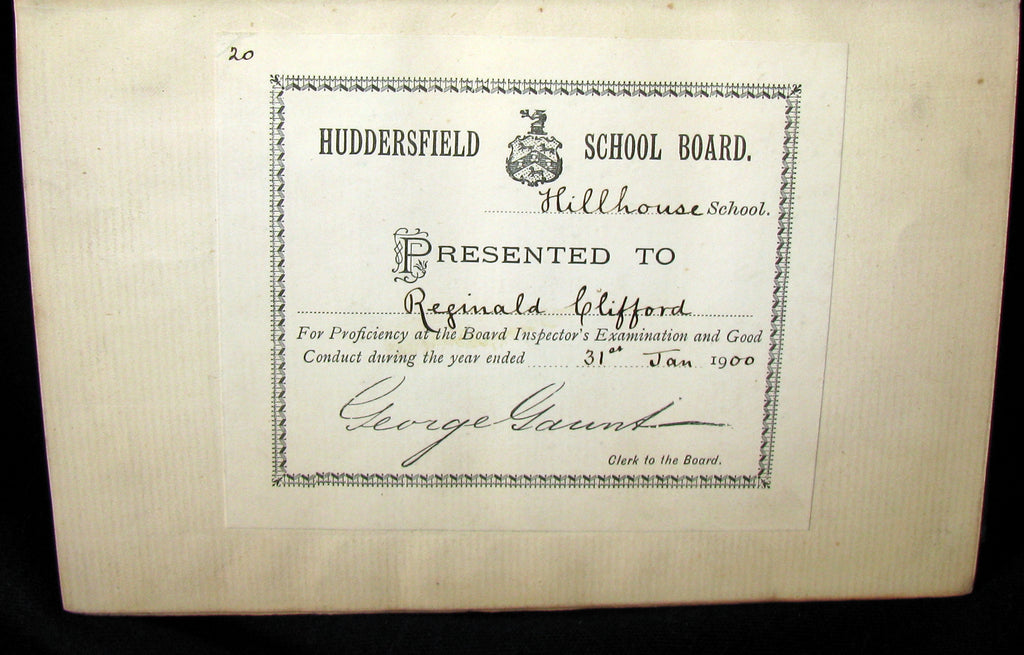 20
HUDDERSFIELD SCHOOL BOARD.
Hillhouse School.
PRESENTED TO
Reginald Clifford
For Proficiency at the Board Inspector's Examination and Good
Conduct during the year ended 31st Jan 1900
George Gaunt
Clerk to the Board.